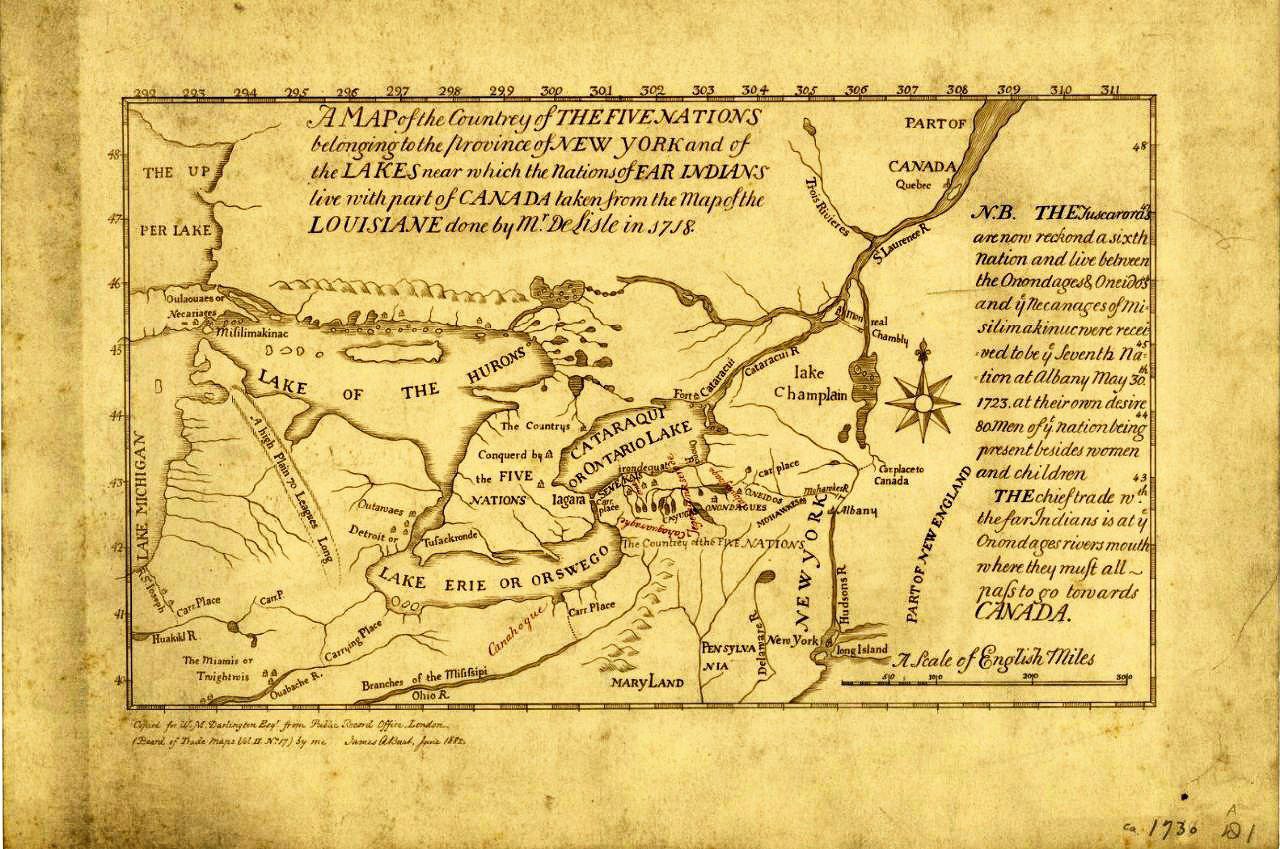 292 293 294 295 296 297 298 299 300 301 302 303 304 305 306 307 308 309 310 311
A MAP of the Countrey of THE FIVE NATIONS
belonging to the province of NEW YORK and of
the LAKES near which the Nations of FAR INDIANS
live with part of CANADA taken from the Map of the
LOUISIANE done by Mr. De Lisle in 1718.
PART OF
CANADA
Quebec
48
48
THE UP
PER LAKE
47
47
46
45
45
44
44
43
43
42
41
40
Trois Rivieres
St Laurence R
N.B. THE Tuscarora's
are now reckond a sixth
nation and live between
the Onondages & Oneidos
and ye Necanages of Mi-
silimakinuc were recei
-ved to be ye Seventh Na-
tion at Albany May 30th
1723. at their own desire
80 Men of ye nation being
present besides women
and children
THE chief trade wth
the far Indians is at ye
Onondages rivers mouth
where they must all ~
pass to go towards
CANADA.
Oulaouaes or
Necariages
Misilimakinac
LAKE OF THE HURONS
Monreal
Chambly
Cataracui R
Fort Cataracui
lake
Champlain
The Countrys
Conquerd by
the FIVE
NATIONS
CATARAQUI
OR ONTARIO LAKE
A high Plain 70 Leagues Long
LAKE MICHIGAN
Irondequat
SENEKAS
Iagara
Carr.
place
Car place
CAYUGAS
ONONDAGUES
ONEIDOS
MOHAWKES
Mohawkes R
Car place to
Canada
Albany
Outawaes
Detroit or
Tusackronde
The Countrey of the FIVE NATIONS
LAKE ERIE OR ORSWEGO
NEW YORK
PART OF NEW ENGLAND
Hudsons R
R St Joseph
Carr Place
Carr.P.
Carrying Place
Canahogue
Carr Place
Huakiki R
The Miamis or
Twightwis
Ouabache R.
Branches of the Misissipi
Ohio R.
MARYLAND
PENSYLVA
NIA
Delaware R.
New York
long Island
A Scale of English Miles
50 100 200 300
Copied for W. M. Darlington Esqr. from Public Record Office, London.
(Board of Trade Maps Vol. II. No. 17) by me
ca. 1730